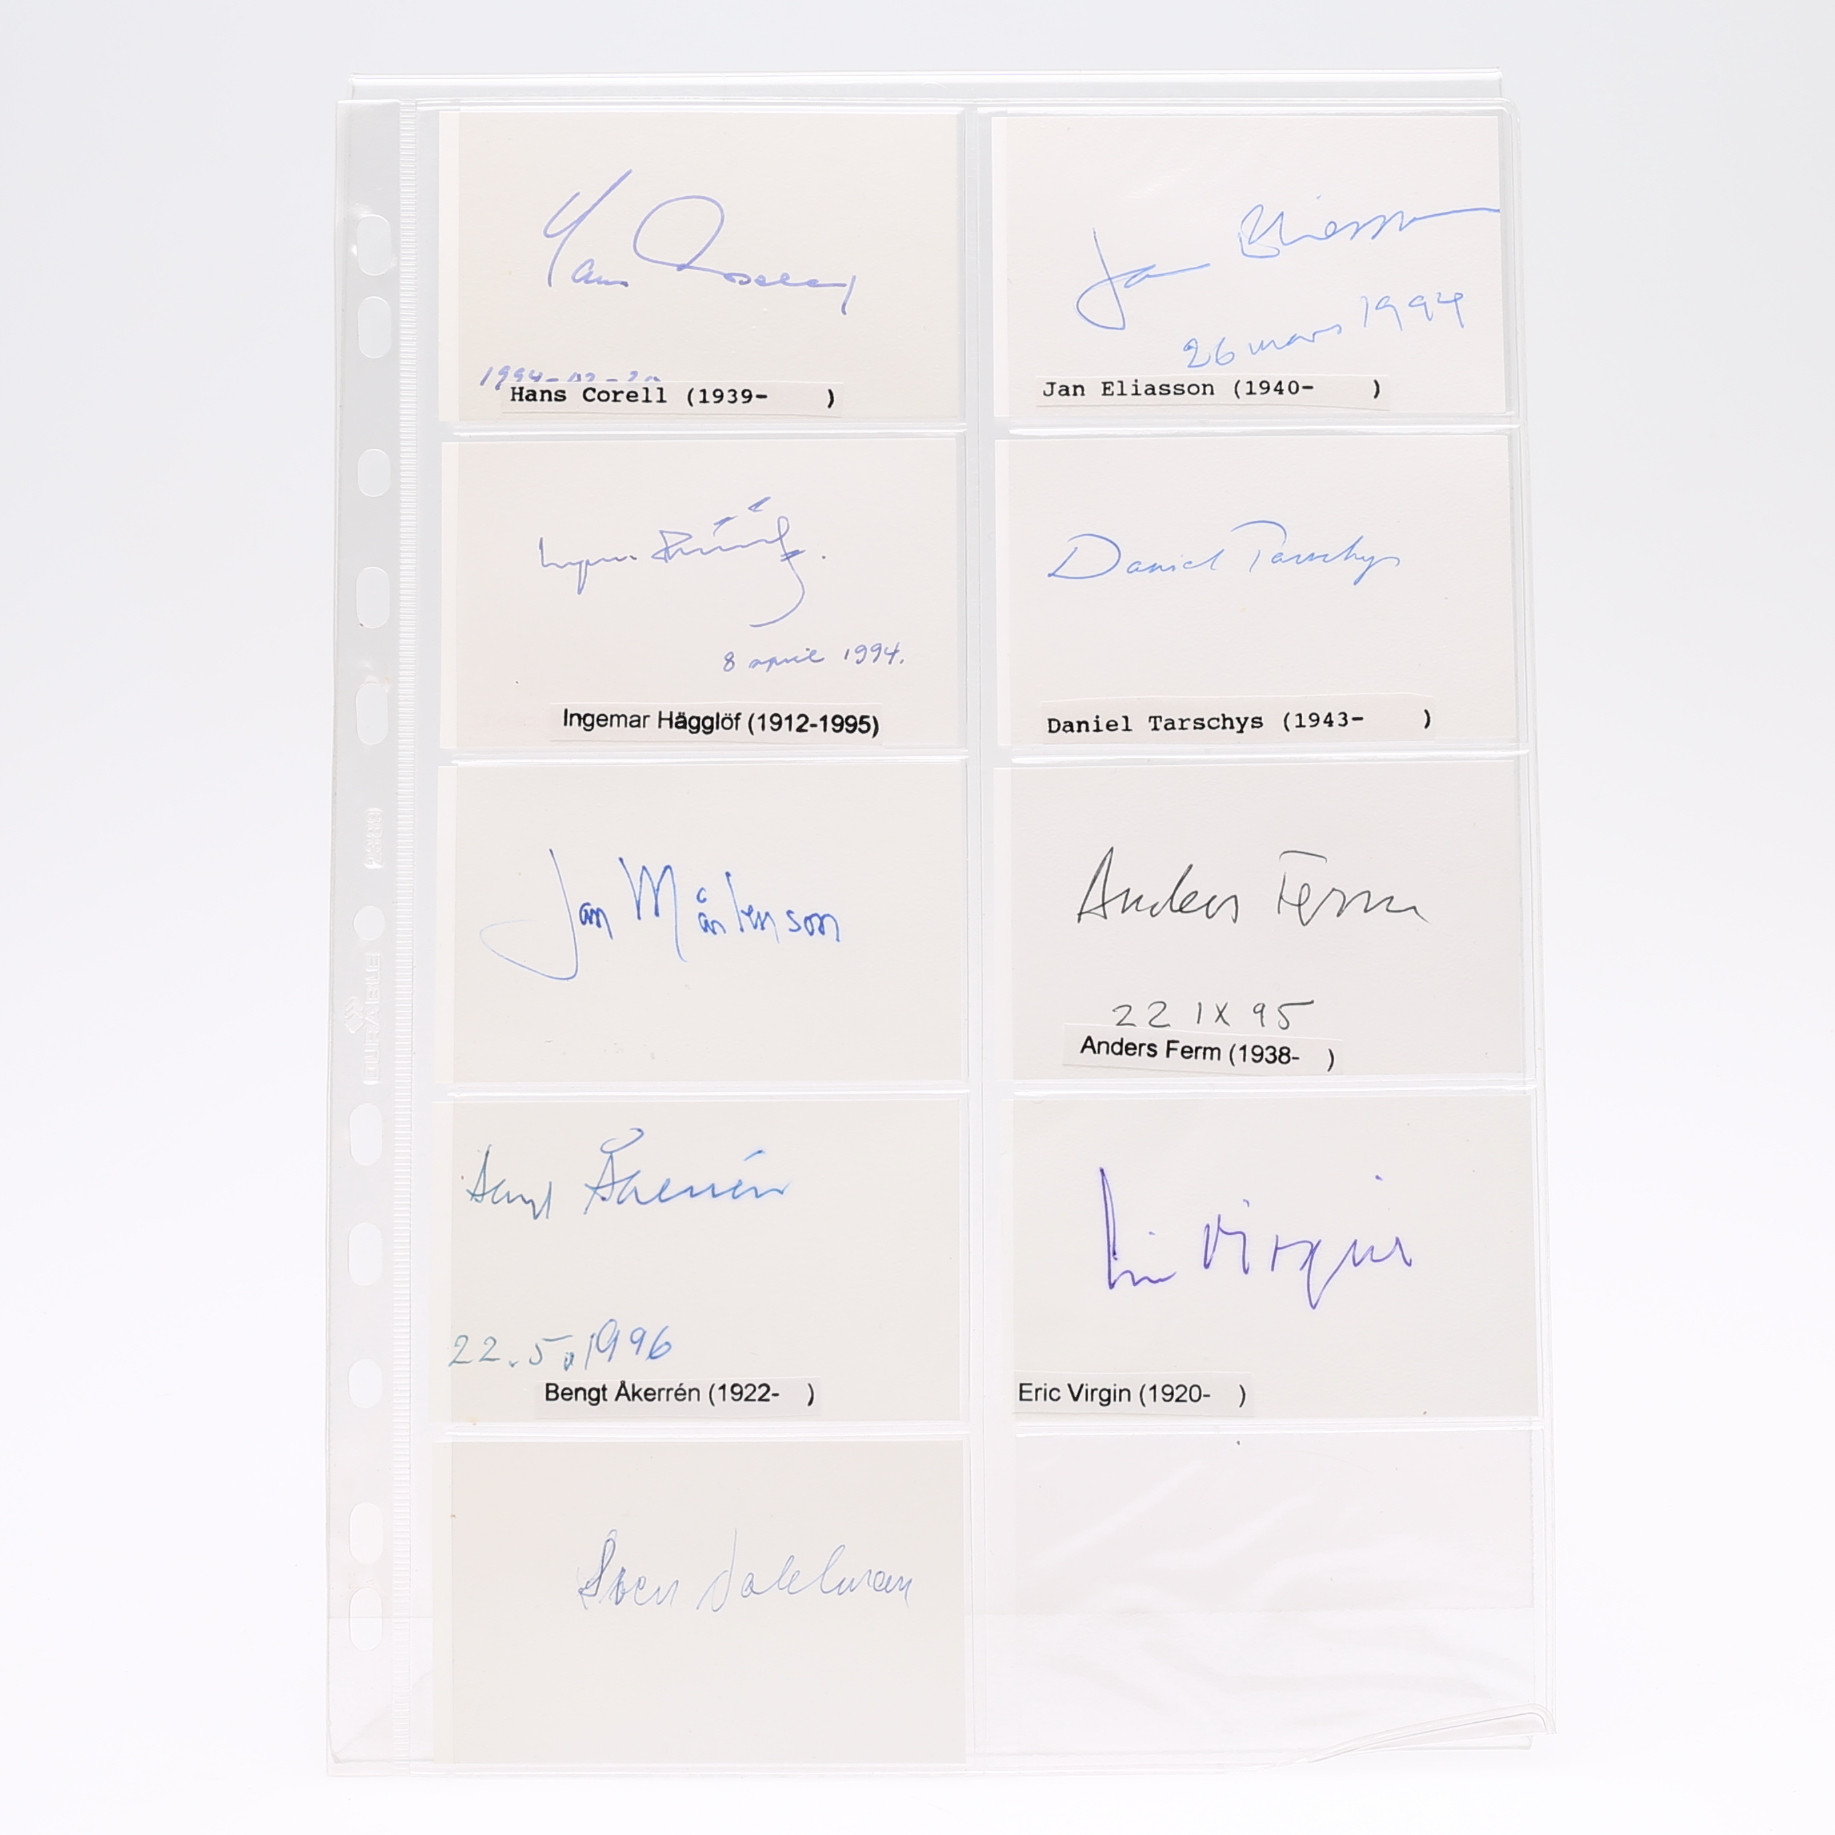 Hans Corell
Hans Corell (1939- )
Jan Eliasson
26 mars 1994
Jan Eliasson (1940- )
Ingemar Hägglöf.
8 april 1994.
Ingemar Hägglöf (1912-1995)
Daniel Tarschys
Daniel Tarschys (1943- )
Jan Mårtenson
Anders Ferm
22 IX 95
Anders Ferm (1938- )
Bengt Åkerrén
22.5.1996
Bengt Åkerrén (1922- )
Eric Virgin
Eric Virgin (1920- )
Sven Dahlman